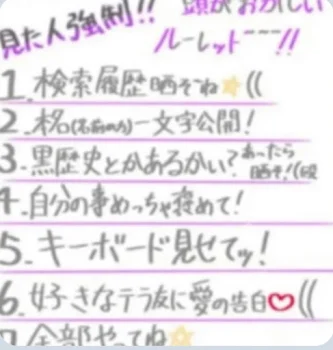 見た人強制!! 頭がおかしい
ルーレット~~~!!
1.検索履歴晒そーね⭐((
2.本名(名前のみ)一文字公開!
3.黒歴史とかあるかい?あったら
晒そ!(殴
4.自分の事めっちゃ褒めて!
5.キーボード見せてッ!
6.好きなテラ友に愛の告白♡((
7全部やってね⭐